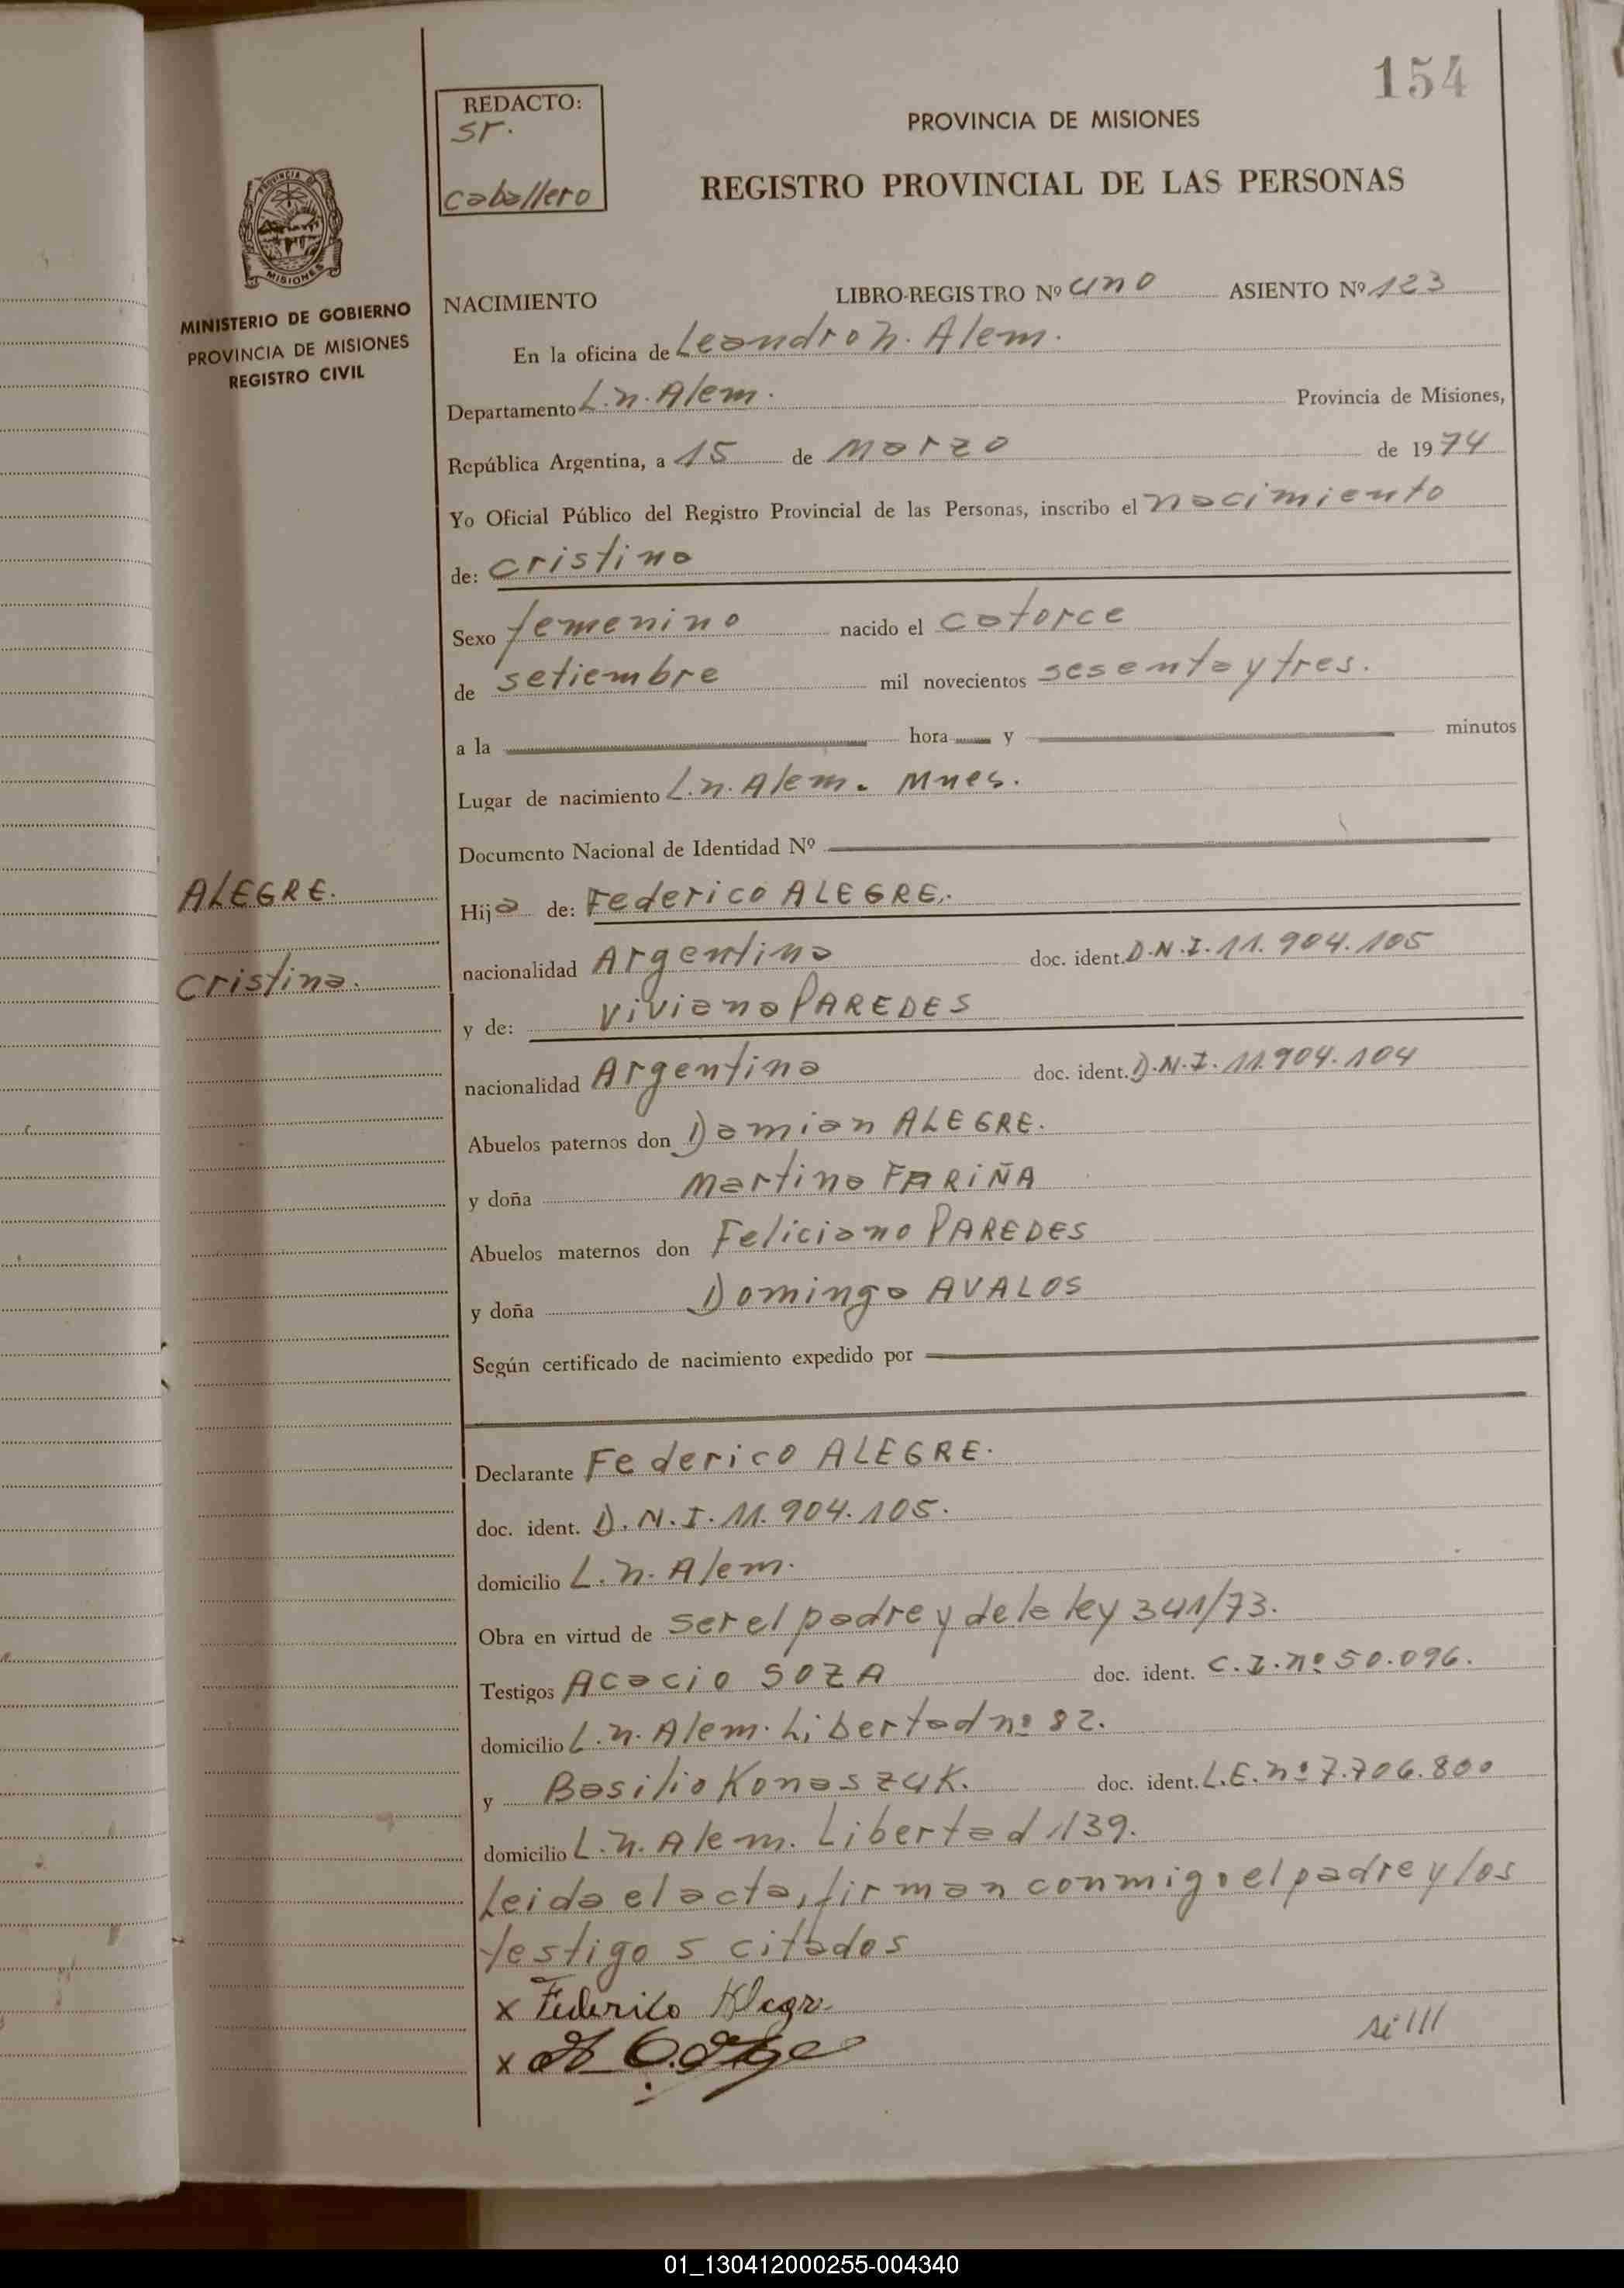 154
REDACTO:
sr.
caballero
PROVINCIA DE MISIONES
REGISTRO PROVINCIAL DE LAS PERSONAS
PROVINCIA DE
MISIONES
MINISTERIO DE GOBIERNO
PROVINCIA DE MISIONES
REGISTRO CIVIL
NACIMIENTO LIBRO-REGISTRO Nº uno ASIENTO Nº 123
En la oficina de Leandro n. Alem.
Departamento L.n. Alem. Provincia de Misiones,
República Argentina, a 15 de marzo de 1974
Yo Oficial Público del Registro Provincial de las Personas, inscribo el nacimiento
de: cristina
Sexo femenino nacido el catorce
de setiembre mil novecientos sesenta y tres.
a la hora y minutos
Lugar de nacimiento L.n. Alem. Mnes.
Documento Nacional de Identidad Nº
ALEGRE.
cristina.
Hija de: Federico ALEGRE.
nacionalidad Argentina doc. ident. D.N.I. 11.904.105
y de: Viviana PAREDES
nacionalidad Argentina doc. ident. D.N.I. 11.904.104
Abuelos paternos don Damian ALEGRE.
y doña Martina FARIÑA
Abuelos maternos don Feliciano PAREDES
y doña Dominga AVALOS
Según certificado de nacimiento expedido por
Declarante Federico ALEGRE.
doc. ident. D.N.I. 11.904.105.
domicilio L.n. Alem.
Obra en virtud de ser el padre y de la ley 341/73.
Testigos Acacio SOZA doc. ident. C.I. nº 50.096.
domicilio L.n. Alem. Libertad nº 82.
y Basilio Konaszuk. doc. ident. L.E. nº 7.706.800
domicilio L.n. Alem. Libertad 139.
Leida el acta, firman conmigo el padre y los
testigos citados
x Federico Alegr
x
01_130412000255-004340